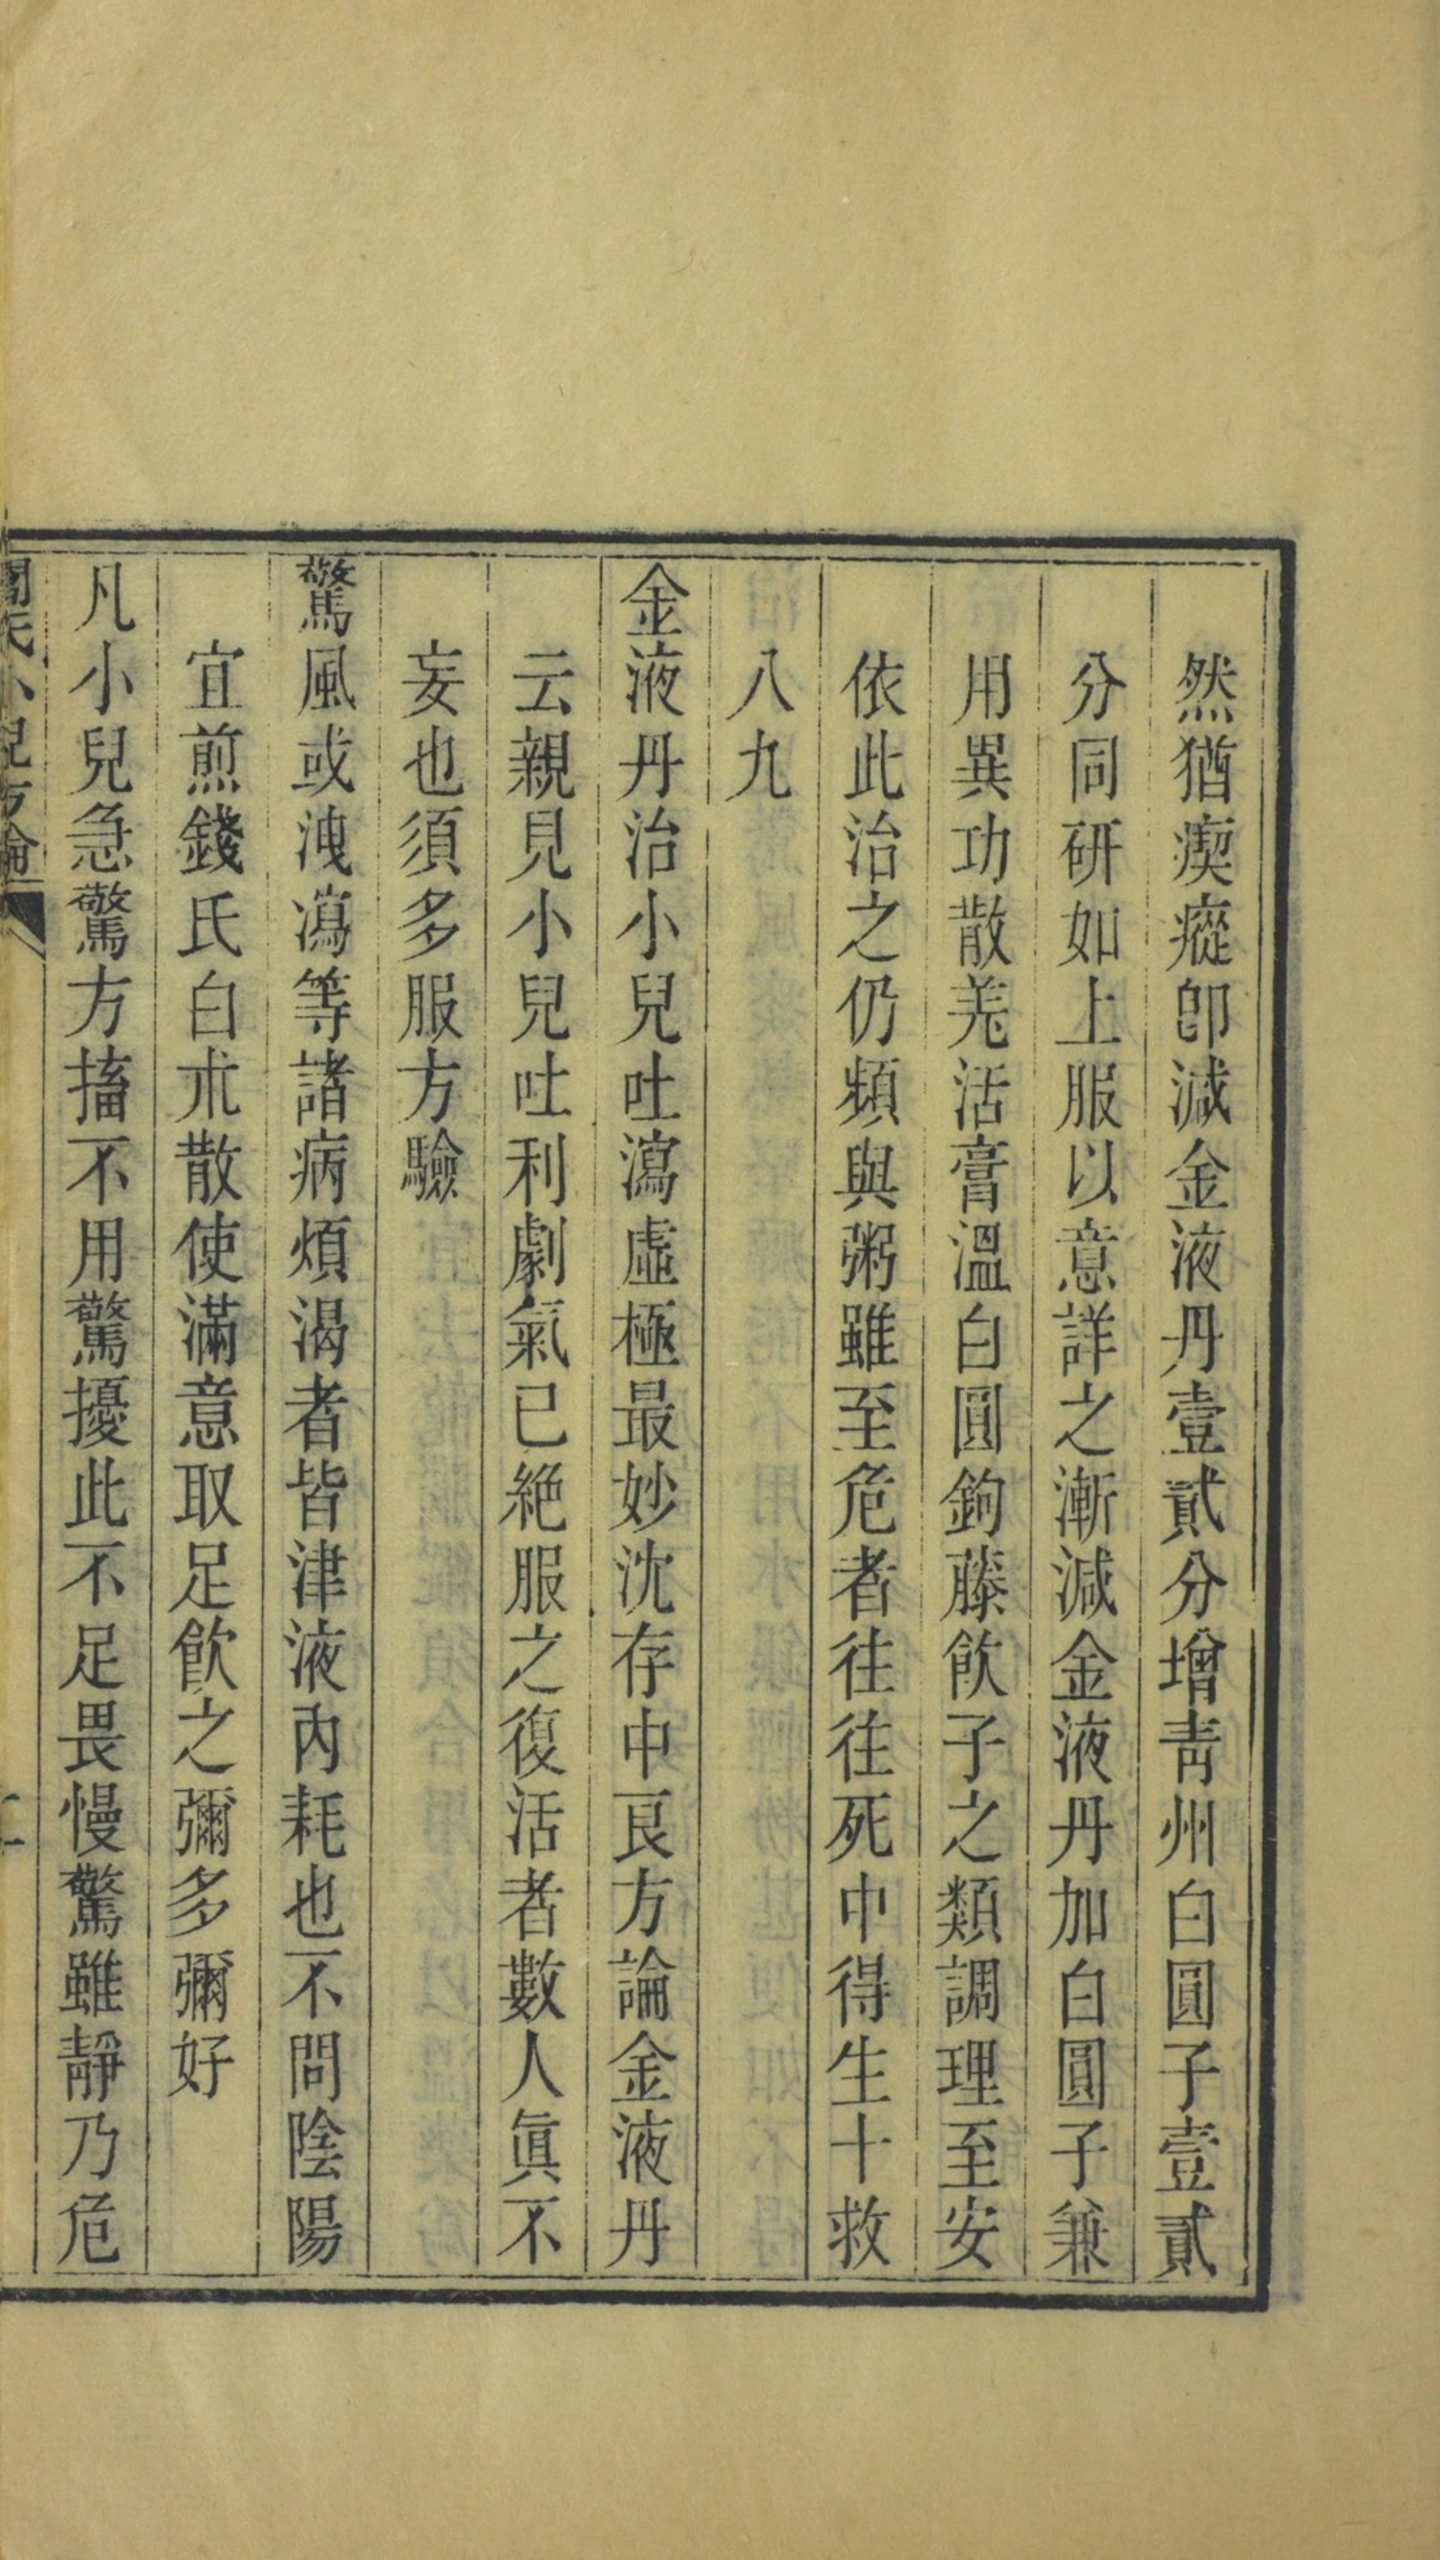 然猶瘈瘲卽減金液丹壹貳分增青州白圓子壹貳
分同硏如上服以意詳之漸減金液丹加白圓子兼
用異功散羌活膏溫白圓鉤藤飲子之類調理至安
依此治之仍頻與粥雖至危者往往死中得生十救
八九
金液丹治小兒吐瀉虛極最妙沈存中良方論金液丹
云親見小兒吐利劇氣已絕服之復活者數人眞不
妄也須多服方驗
驚風或洩瀉等諸病煩渴者皆津液內耗也不問陰陽
宜煎錢氏白朮散使滿意取足飮之彌多彌好
凡小兒急驚方搐不用驚擾此不足畏慢驚雖靜乃危
閻氏小兒方論